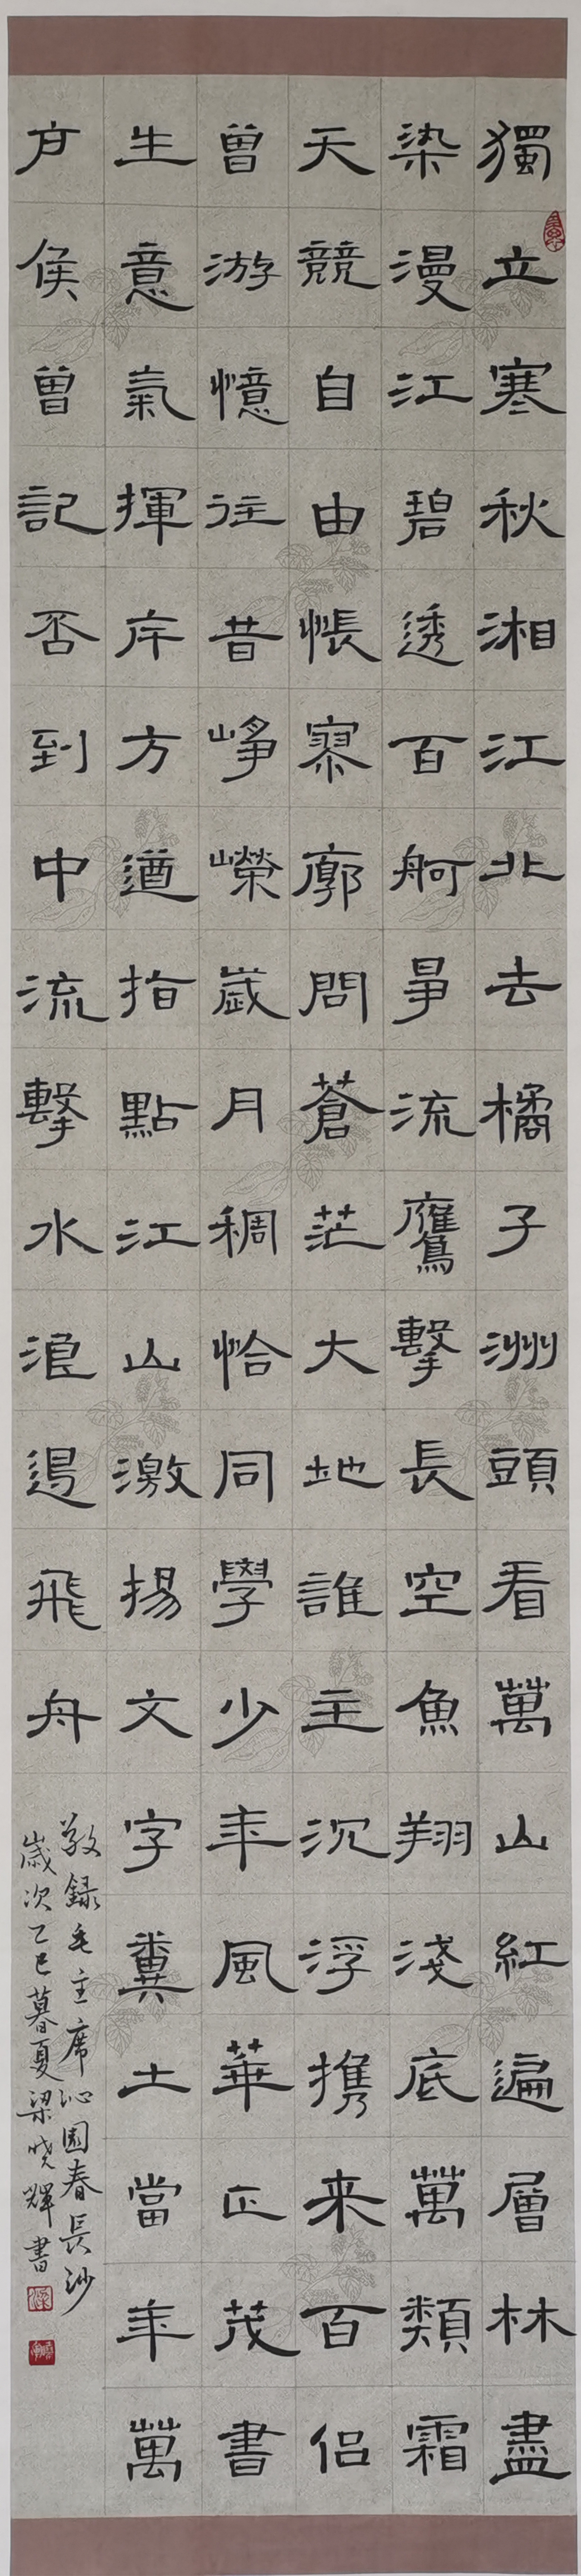 獨立寒秋湘江北去橘子洲頭看萬山紅遍層林盡
染漫江碧透百舸爭流鷹擊長空魚翔淺底萬類霜
天競自由悵寥廓問蒼茫大地誰主沉浮携来百侣
曾游憶往昔崢嶸歲月稠恰同學少年風華正茂書
生意氣揮斥方遒指點江山激揚文字糞土當年萬
户侯曾記否到中流擊水浪遏飛舟
敬録毛主席沁園春長沙
歲次乙巳暮夏梁晓輝書